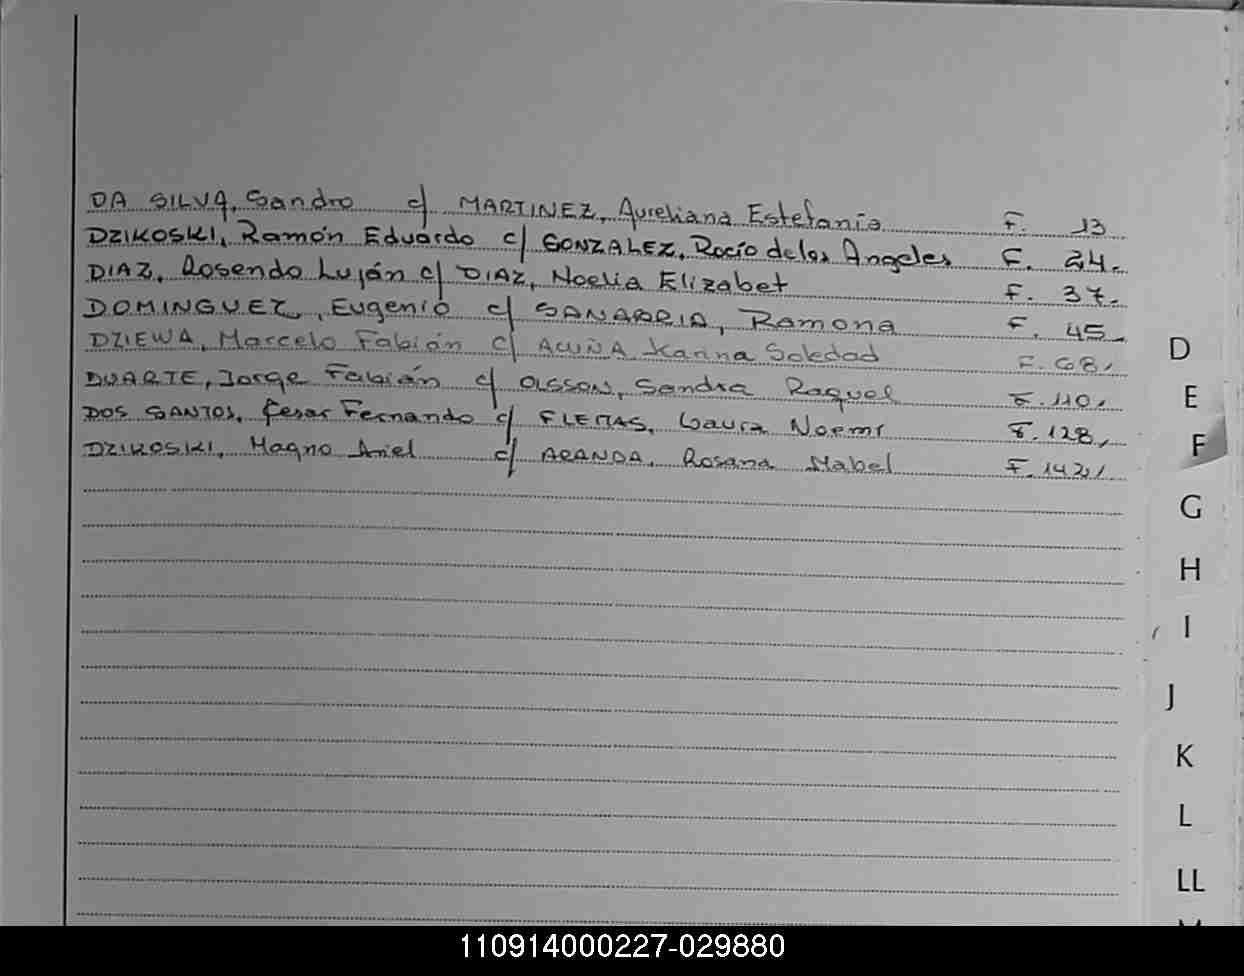 DA SILVA, Sandro c/ MARTINEZ, Aureliana Estefania F. 13
DZIKOSKI, Ramón Eduardo c/ GONZALEZ, Rocío de los Angeles F. 24.
DIAZ, Rosendo Luján c/ DIAZ, Noelia Elizabet F. 37.
DOMINGUEZ, Eugenio c/ SANABRIA, Ramona F. 45.
DZIEWA, Marcelo Fabián c/ ACUÑA, Karina Soledad F. 68,
DUARTE, Jorge Fabián c/ OLSSON, Sandra Raquel F. 110,
DOS SANTOS, Cesar Fernando c/ FLEITAS, Laura Noemi F. 128,
DZIKOSKI, Magno Ariel c/ ARANDA, Rosana Mabel F. 142,
D
E
F
G
H
I
J
K
L
LL
110914000227-029880